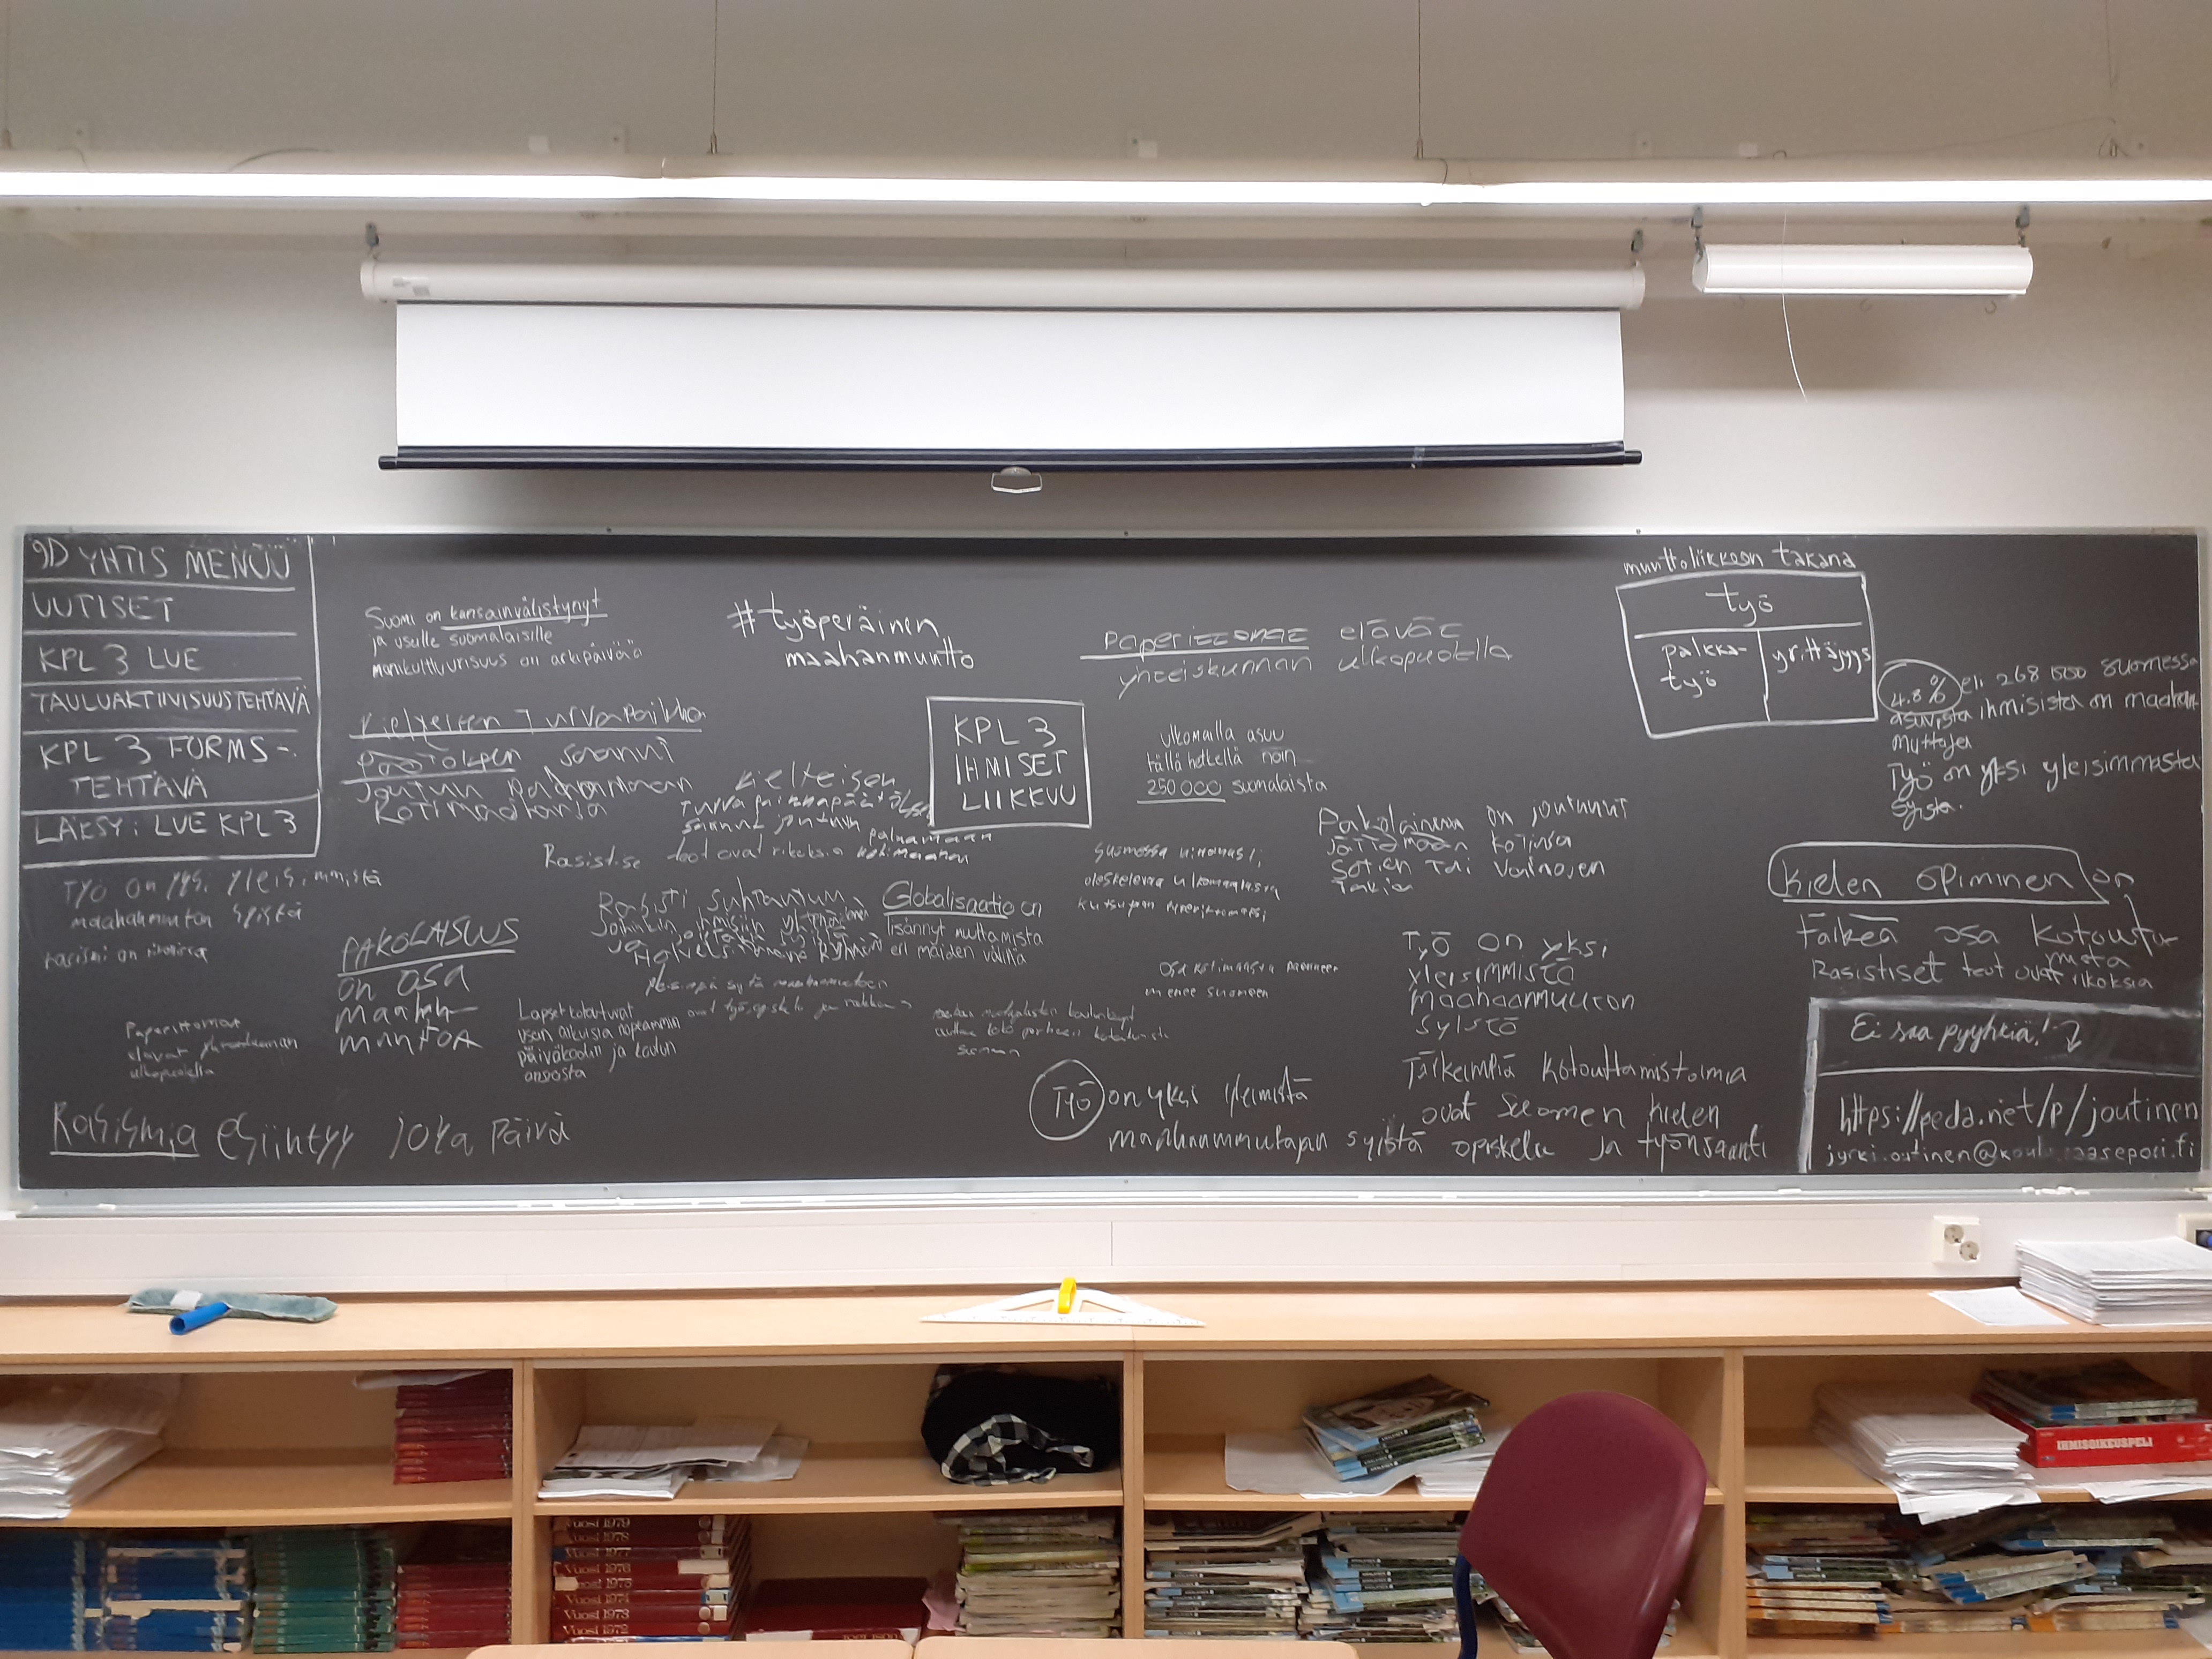 9D YHTIS MENÜÜ
UUTISET
KPL 3 LUE
TAULUAKTIIVISUUSTEHTÄVÄ
KPL 3 FORMS-
TEHTÄVÄ
LÄKSY: LUE KPL 3
TYÖ on yksi yleisimmistä
maahanmuuton syistä
rasismi on
Paperittomat
elävät yhteiskunnan
ulkopuolella
Rasismia esiintyy joka päivä
Suomi on kansainvälistynyt
ja uselle suomalaisille
monikulttuurisuus on arkipäivää
Kielteisen Turvapaikka
päätöksen saanut
Joutuu palaamaan
Kotimaahansa
PAKOLAISUUS
on osa
maahan-
muuttoa
#työperäinen
maahanmuutto
kielteisen
turvapaikkapäätöksen
saanut joutuu palaamaan
kotimaahan
Rasistise teot ovat rikoksia
Rasisti suhtautuu
joihinkin ihmisiin
Globalisaatio on
lisännyt muuttamista
eri maiden välillä
ovat työ, opiskelu ja
Lapset kotoutuvat
usein aikuisia nopeammin
päiväkodin ja koulun
ansiosta
koko perheen
KPL 3
IHMISET
LIIKKUU
paperittomat elävät
yhteiskunnan ulkopuolella
Ulkomailla asuu
tällä hetkellä noin
250 000 suomalaista
Suomessa
oleskelevia ulkomaalaisia
kutsutaan paperittomaksi
Osa kotimaasta
menee suomeen
TYÖ on yksi yleimistä
maahanmmutajan syistä
Pakolainen on joutunut
Jättämään kotinsa
Sotien Tai Vainojen
Takia
TYÖ on yksi
yleisimmistä
maahanmuuton
syistä
Tärkeimpiä kotouttamistoimia
ovat Suomen kielen
opiskelu ja työnsaanti
muuttoliikkeen takana
Työ
palkka-
työ
yrittäjyys
4.8% eli 268 000 suomessa
asuvista ihmisista on maahan
muttajea
Työ on yksi yleisimmasta
syista.
kielen opiminen on
Tärkeä osa kotoutu-
mista
Rasistiset teot ovat rikoksia
Ei saa pyyhkiä!
https://peda.net/p/joutinen
jyrki.outinen@koulu.raasepori.fi
IHMISOIKEUSPELI
Vuosi 1979
Vuosi 1978
Vuosi 1977
Vuosi 1976
Vuosi 1975
Vuosi 1974
Vuosi 1973
Vuosi 1972